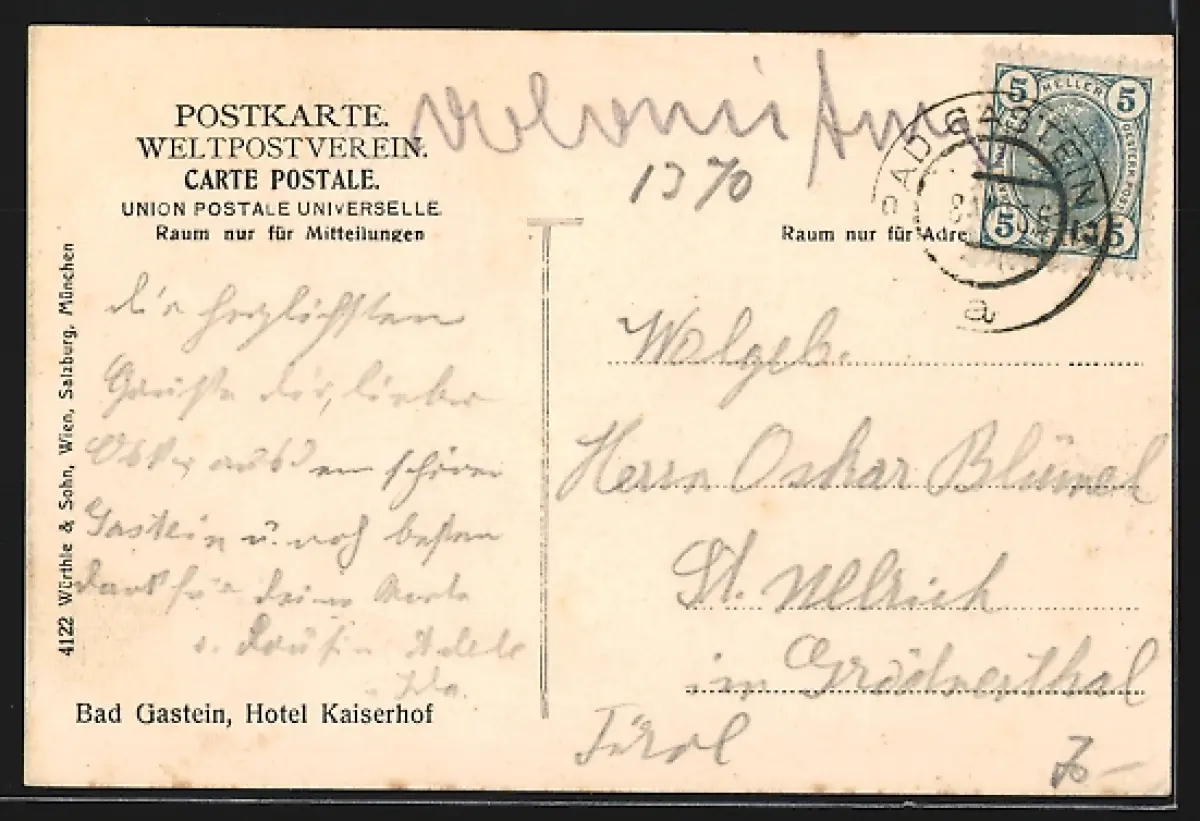 POSTKARTE.
WELTPOSTVEREIN.
CARTE POSTALE.
UNION POSTALE UNIVERSELLE.
Raum nur für Mitteilungen
1370
5 HELLER 5
5 5
BAD GASTEIN
a
Raum nur für Adre
die herzlichsten
Grüße dir, lieber
Oskar aus dem schönen
Gastein u. noch besten
Dank für deine Karte
Adele
Wolgeb.
Herrn Oskar Blümel
St. Ullrich
im Grödnerthal
Tirol
4122 Würthle & Sohn, Wien, Salzburg, München
Bad Gastein, Hotel Kaiserhof